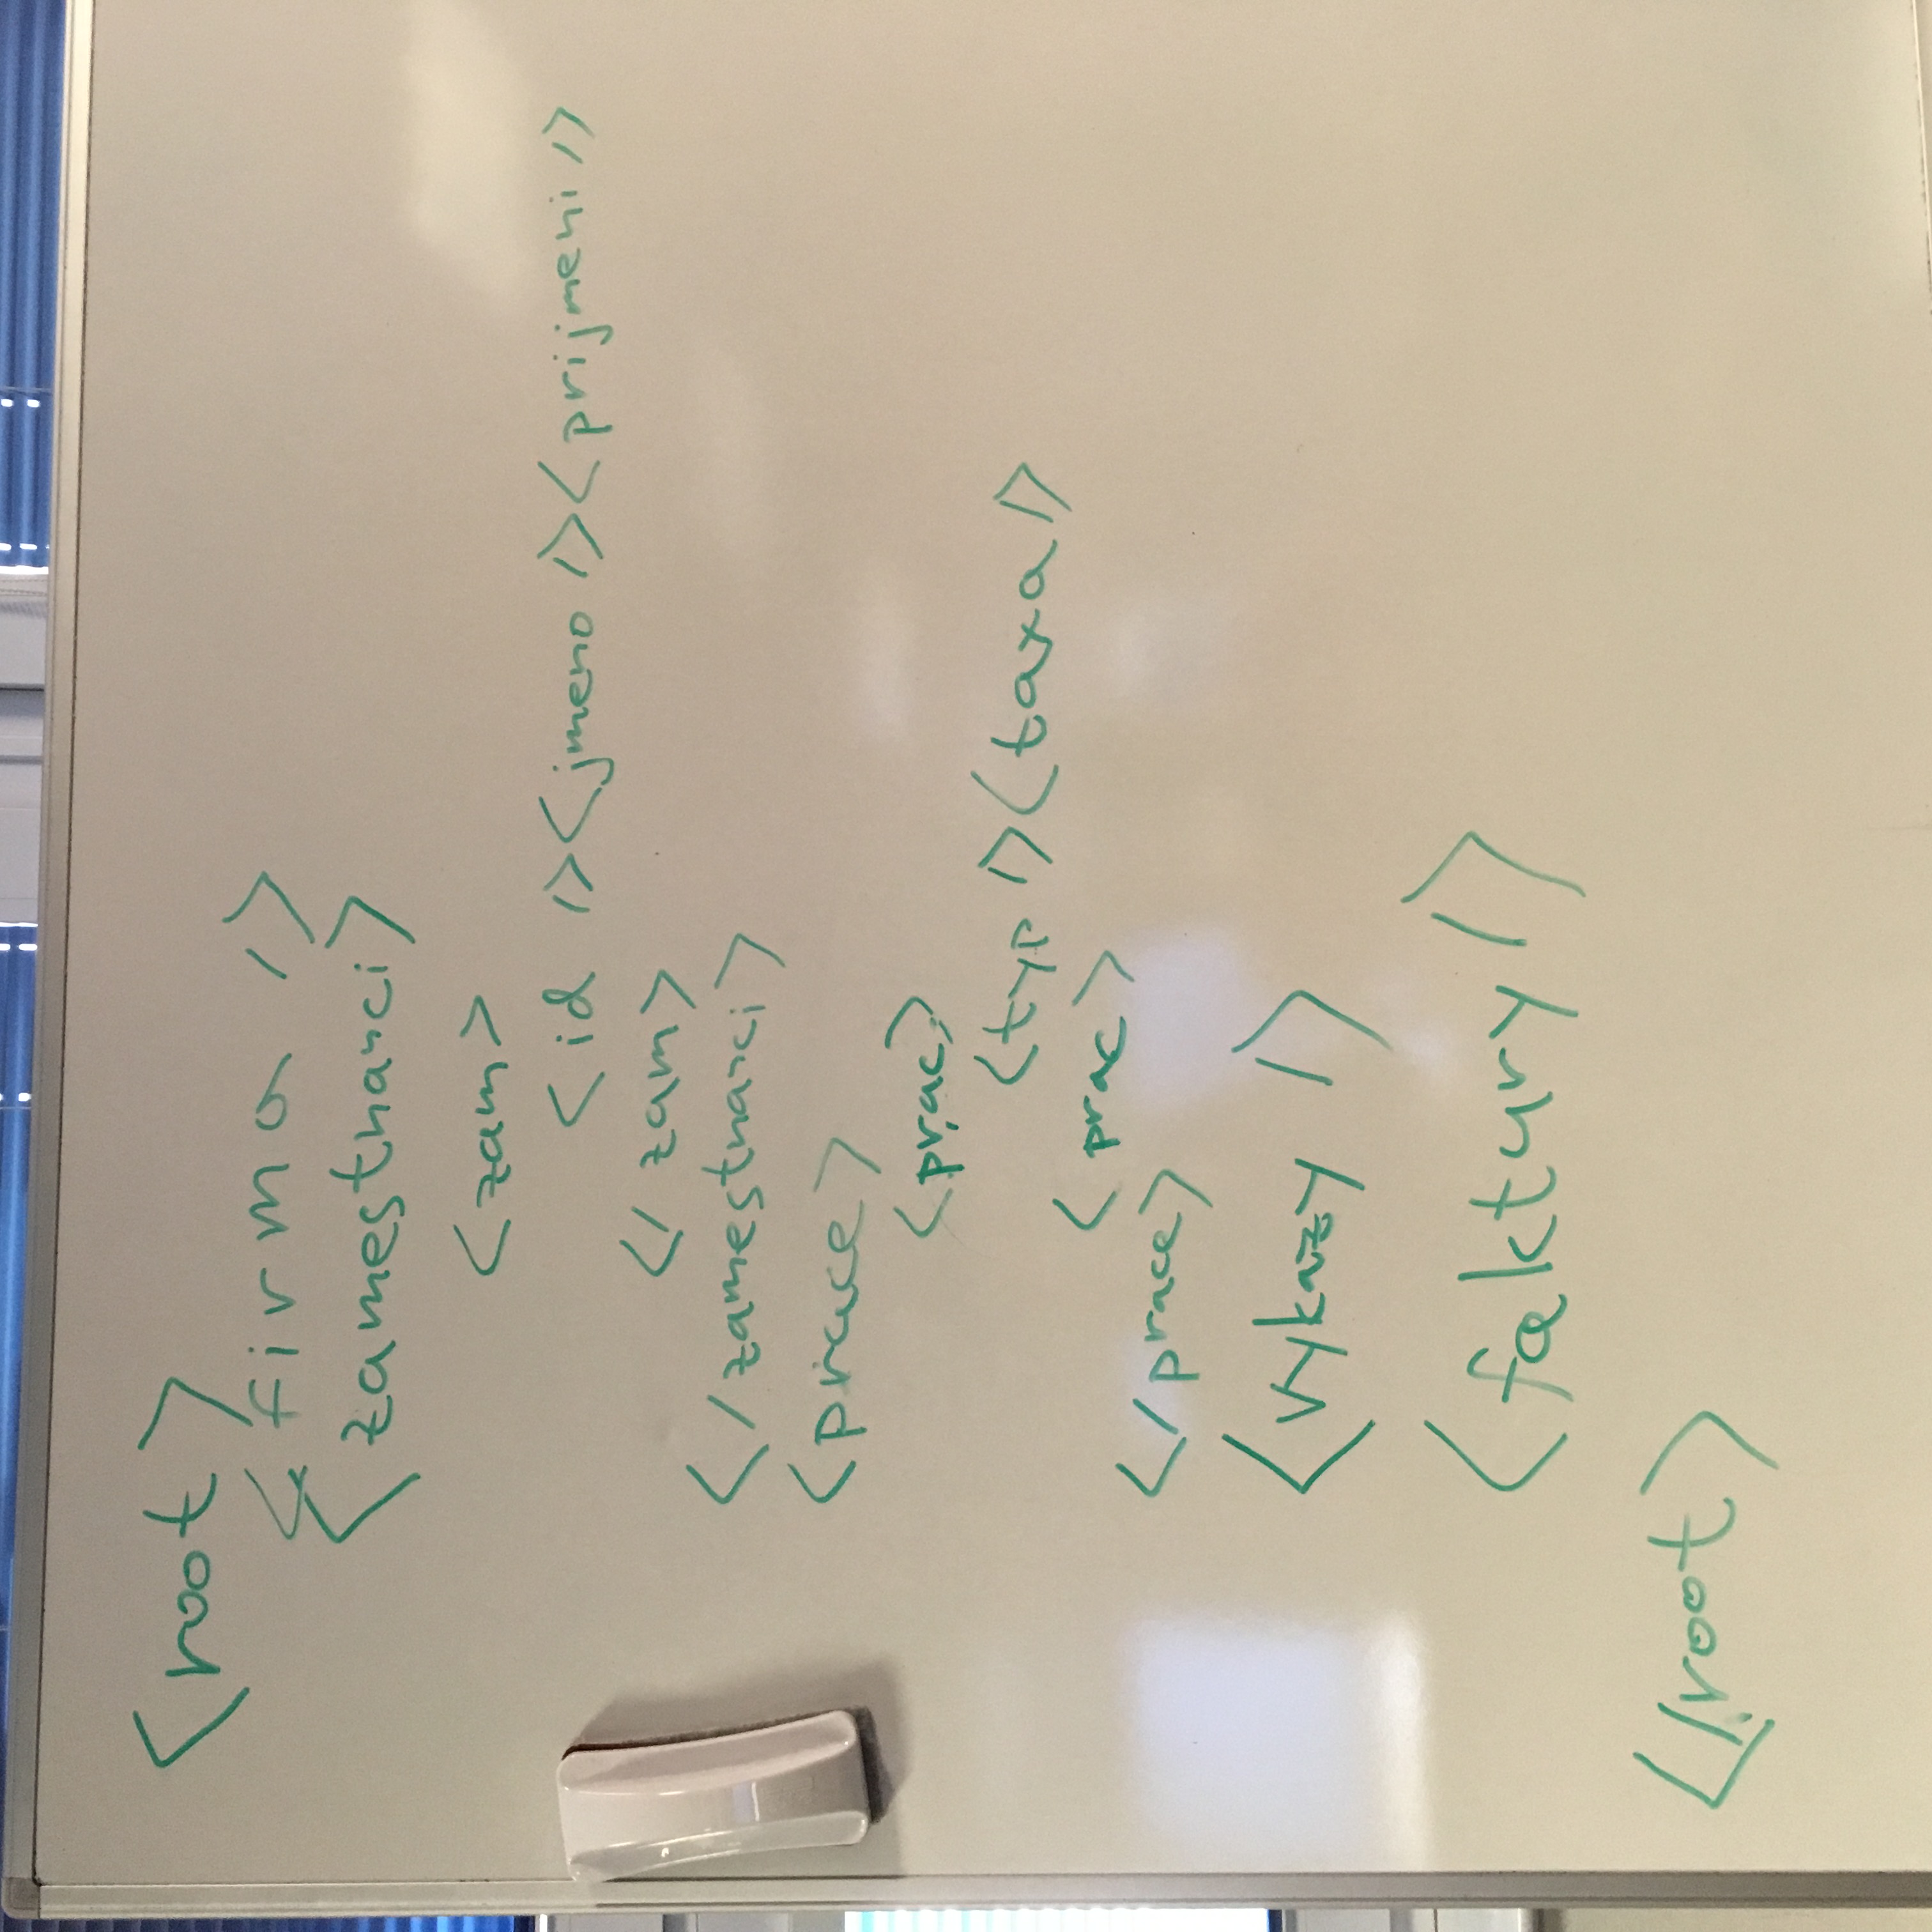 <root>
<firma />
<zamestnanci>
<zam>
<id /><jmeno /><prijmeni />
</zam>
</zamestnanci>
<prace>
<prac>
<typ /><taxa />
<prac>
</prace>
<vykazy />
<faktury />
</root>